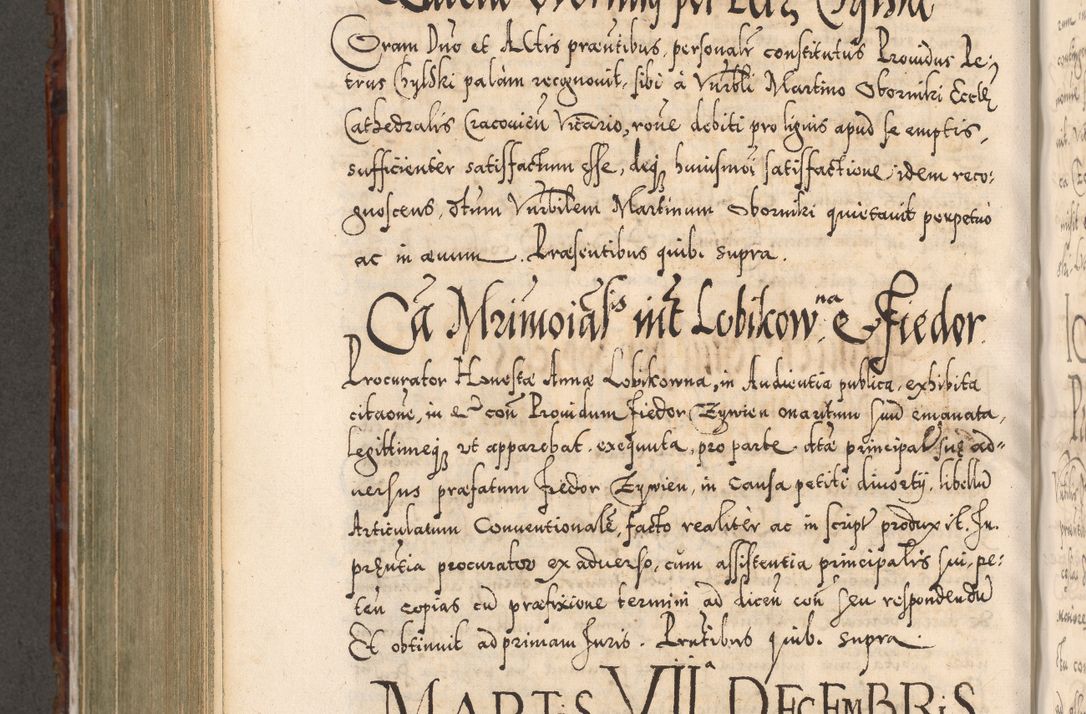 Coram Dno et Actis præntibus, personalr constitutus Prouidus Pe-
trus Chylski palam recognouit, sibi à Vnrbli Martino Oborniki Eccle
Cathedralis Cracouien Vicario, rone debiti pro lignis apud se emptis,
sufficienter satisfactum esse, deq huiusmoi satisfactione idem reco:
gnoscens, dtum Vnrbilem Martinum Oborniki quietauit perpetuo
ac in æuum. Præsentibus quib. supra.
Ca Mrimoialis int Lobikowna e Fiedor.
Procurator Honestæ Annæ Lobikowna, in Audientia publica, exhibita
citaone, in et con Prouidum Fiedor Czywien maritum suu emanata,
legittimeq vt apparebat exequuta, pro parte dtæ principal suæ ad-
uersus præfatum Fiedor Czywien, in causa petiti diuortij, libellu
Articulatum Conuentionale, facto realiter ac in script produxit. In
præntia procurator ex aduerso, cum assistentia principalis sui, pe:
ten copias cu præfixione termini ad dicen con seu respondendu
Et obtinuit ad primam Iuris. Præntibus quib. supra.
MARTIS VII DECEMBRIS